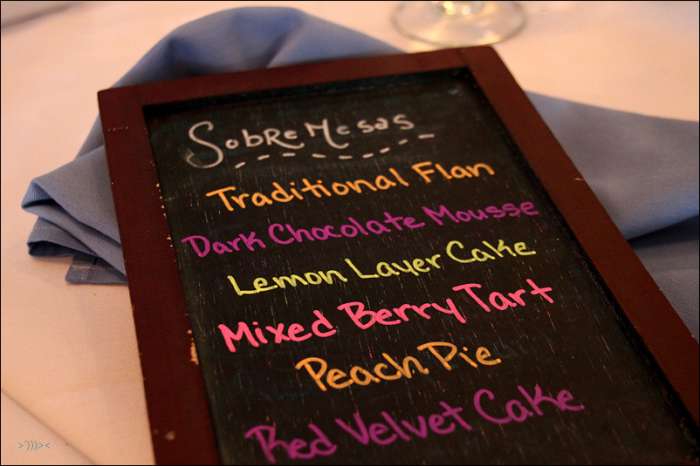 SobRe Mesas
Traditional Flan
Dark Chocolate Mousse
Lemon Layer Cake
Mixed Berry Tart
Peach Pie
Red Velvet Cake
>')))><